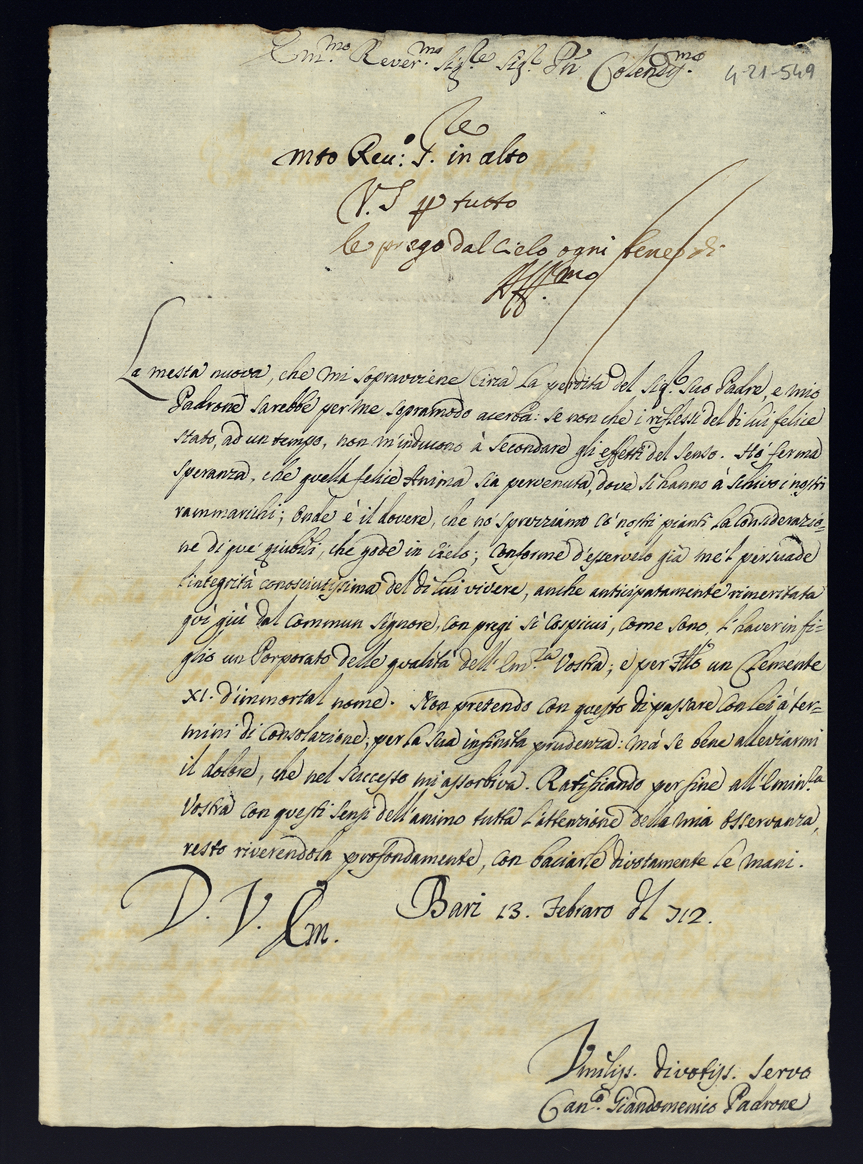 Em.mo Rever.mo Sig.re Sig.r P'n Colendis.mo
4-21-549
Re
mto Reu:o S. in alto
V. S pp tutto
le prego dal cielo ogni bene di
Aff.mo
La mesta nuova, che mi sopravviene circa la perdita del Sig.r suo Padre, e mio
Padrone sarebbe per me sopramodo acerba: se non che i riflessi del di lui felice
stato, ad un tempo, non m'inducono à secondare gli effetti del senso. Hò ferma
speranza, che quella felice Anima sia pervenuta, dove si hanno à schivo i nostri
rammarichi; Onde è il dovere, che nò spreziamo cò nostri pianti la considerazio=
ne di que' giubili, che gode in Cielo; Conforme d'esservelo già me'l persuade
l'integrità conosciutissima del di lui vivere, anche anticipatamente rimeritata
quì giù dal Commun Signore, con pregi sì cospicui, come sono, l'haver in fi=
glio un Porporato delle qualità dell'Em.za Vostra; e per Fr̃llo un Clemente
XI. d'immortal nome. Non pretendo con questo di passare con Lei à ter=
mini di Consolazione, per la sua infinita prudenza: mà se bene alleviarmi
il dolore, che nel successo mi assorbiva. Ratificando per fine all'Emin.za
Vostra con questi sensi dell'animo tutta l'attenzione della mia osservanza,
resto riverendola profondamente, con baciarle divotamente le mani.
D. V. Em. Bari 13. Febraro del 712.
Umilis. divotis. servo
Can.co Giandomenico Padrone